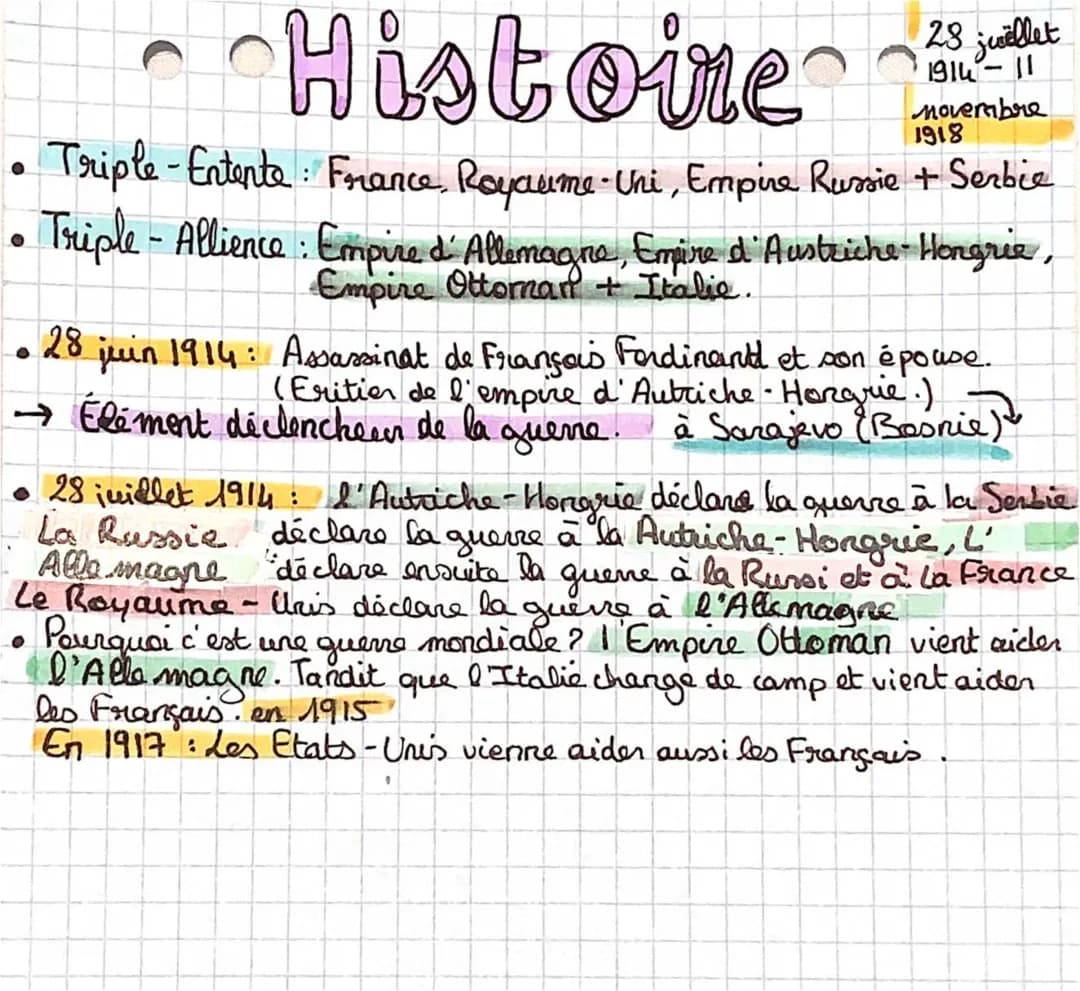 Histoire
28 juillet
1914 - 11
novembre
1918
• Triple-Entente : France, Royaume-Uni, Empire Russie + Serbie
• Triple - Allience : Empire d'Allemagne, Empire d'Austriche-Hongrie,
Empire Ottoman + Italie.
• 28 juin 1914 : Assassinat de François Ferdinantd et son épouse.
(Eritier de l'empire d'Autriche - Hongrie.)
→ Élément déclencheur de la guerre. à Sarajevo (Bosnie)
• 28 juillet 1914 : l'Autriche-Hongrie déclare la guerre à la Serbie
La Russie déclare la guerre à la Autriche-Hongrie, L'
Allemagne déclare ensuite la guerre à la Russi et à la France
Le Royaume-Unis déclare la guerre à l'Allemagne
• Pourquoi c'est une guerre mondiale ? l'Empire Ottoman vient aider
l'Allemagne. Tandit que l'Italie change de camp et vient aider
les Français. en 1915
En 1917 : Les Etats-Unis vienne aider aussi les Français.